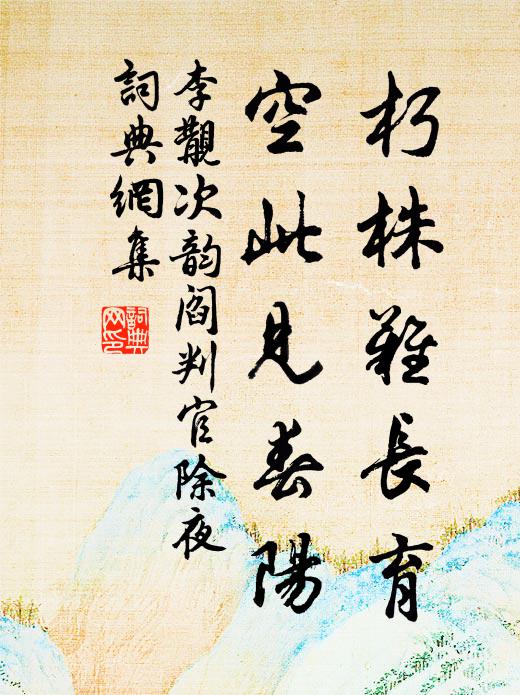 朽株難長育
空此見春陽
李覯次韵閻判官除夜
詞典網集
詞典
网印